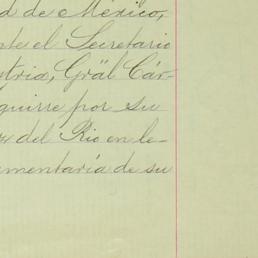 d de México,
te el Secretario
tria, Gräl Cár-
guirre por su
del Rio en le-
mentaria de su